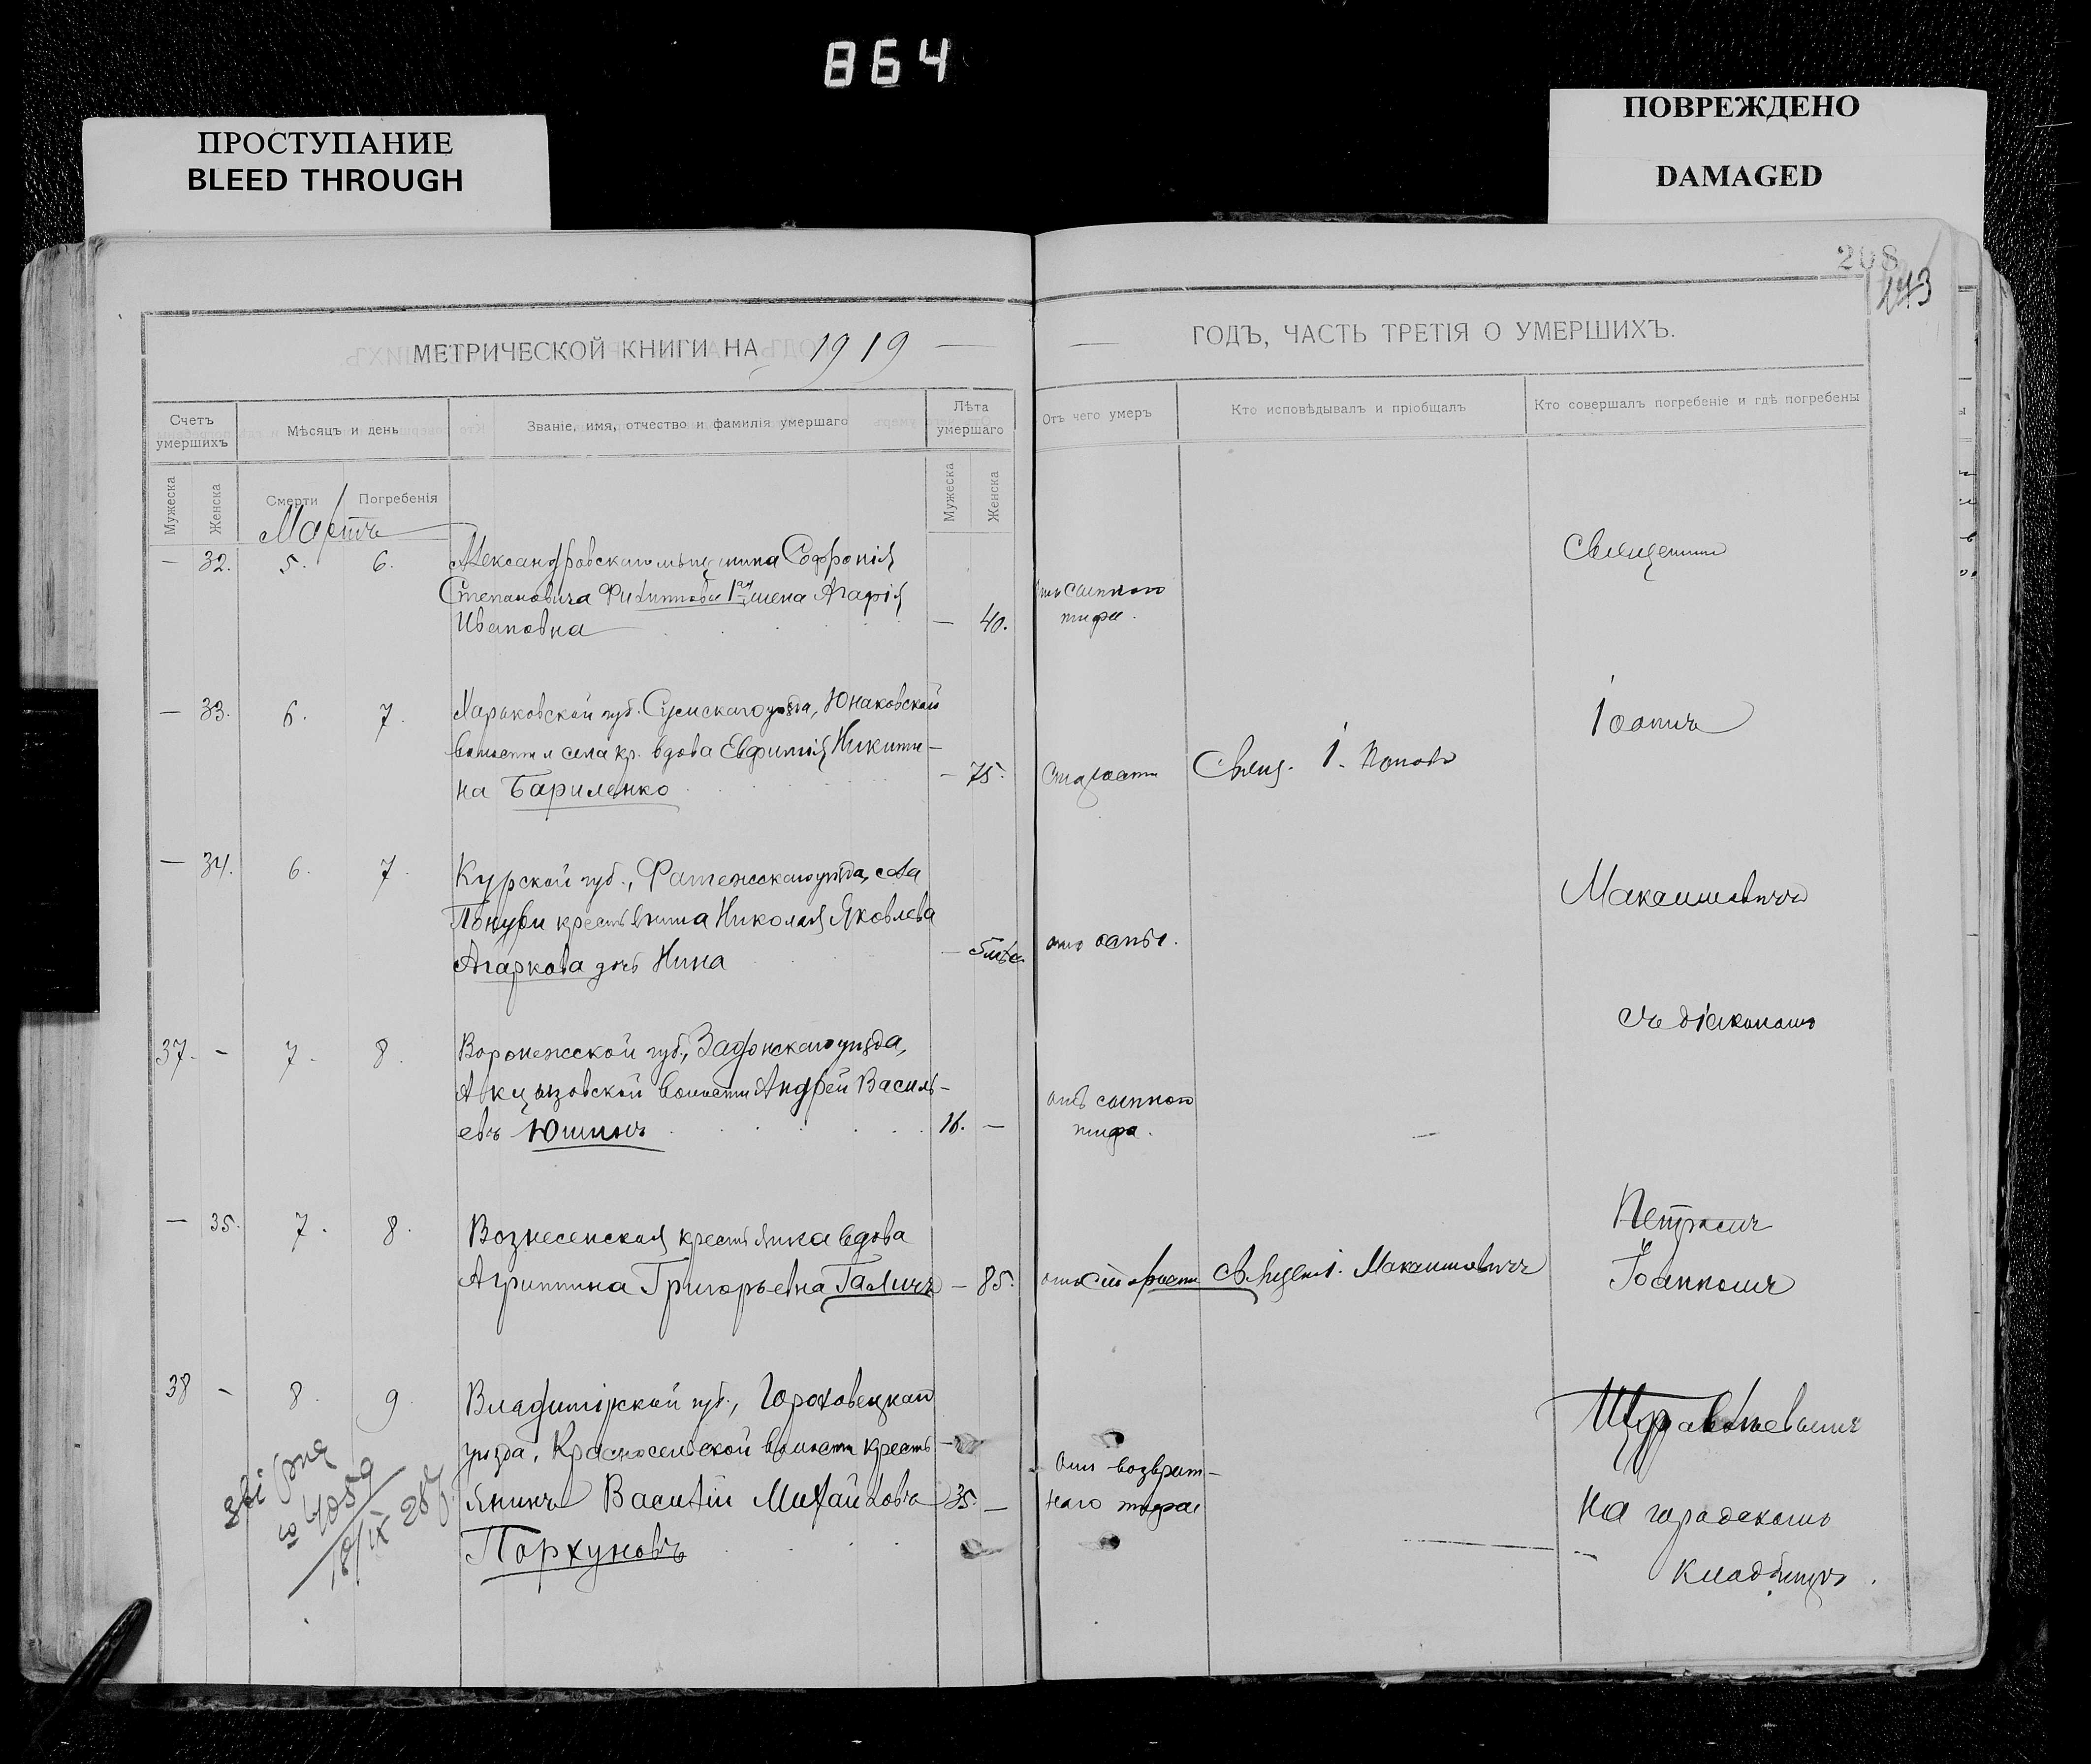 864
ПРОСТУПАНИЕ
BLEED THROUGH
ПОВРЕЖДЕНО
DAMAGED
208
143
МЕТРИЧЕСКОЙ КНИГИ НА 1919
ГОДЪ, ЧАСТЬ ТРЕТІЯ О УМЕРШИХЪ.
Счетъ умершихъ
Мѣсяцъ и день
Званіе, имя, отчество и фамилія умершаго
Лѣта умершаго
Отъ чего умеръ
Кто исповѣдывалъ и пріобщалъ
Кто совершалъ погребеніе и гдѣ погребены
Мужеска
Женска
Смерти
Погребенія
Мужеска
Женска
Мартъ
— 32. 5. 6. Александровскаго мѣщанина Софронія
Степановича Филиппова 1ая жена Агафія
Ивановна — 40.
отъ сыпного
тифа.
Священникъ
— 33. 6. 7. Харьковской губ. Сумскаго уѣзда, Юнаковской
волости и села кр. вдова Евфимія Никити-
на Бариленко — 75. Старости Свящ. І. Поповъ
Іоаннъ
— 34. 6. 7. Курской губ., Фатежскаго уѣзда, села
Поныри крестьянина Николая Яковлева
Агаркова дочь Нина — 5 мѣс. отъ оспы.
Максимовичъ
съ діакономъ
37. - 7. 8. Воронежской губ., Задонскаго уѣзда,
волости Андрей Василь-
евъ Юшинъ 16. —
отъ сыпного
тифа. —
— 35. 7. 8. Вознесенская крестьянка вдова
Агриппина Григорьевна Галичъ — 85. отъ старости Священ. І. Максимовичъ
Петромъ
Іоанномъ
38 - 8. 9. Владимірской губ., Гороховецкаго
уѣзда, Красносельской волости кресть-
янинъ Василій Михайловъ 35. —
Порхуновъ
отъ возврат-
наго тифа
4059
18/IX 28
Журавлевымъ
на городскомъ
кладбищѣ.